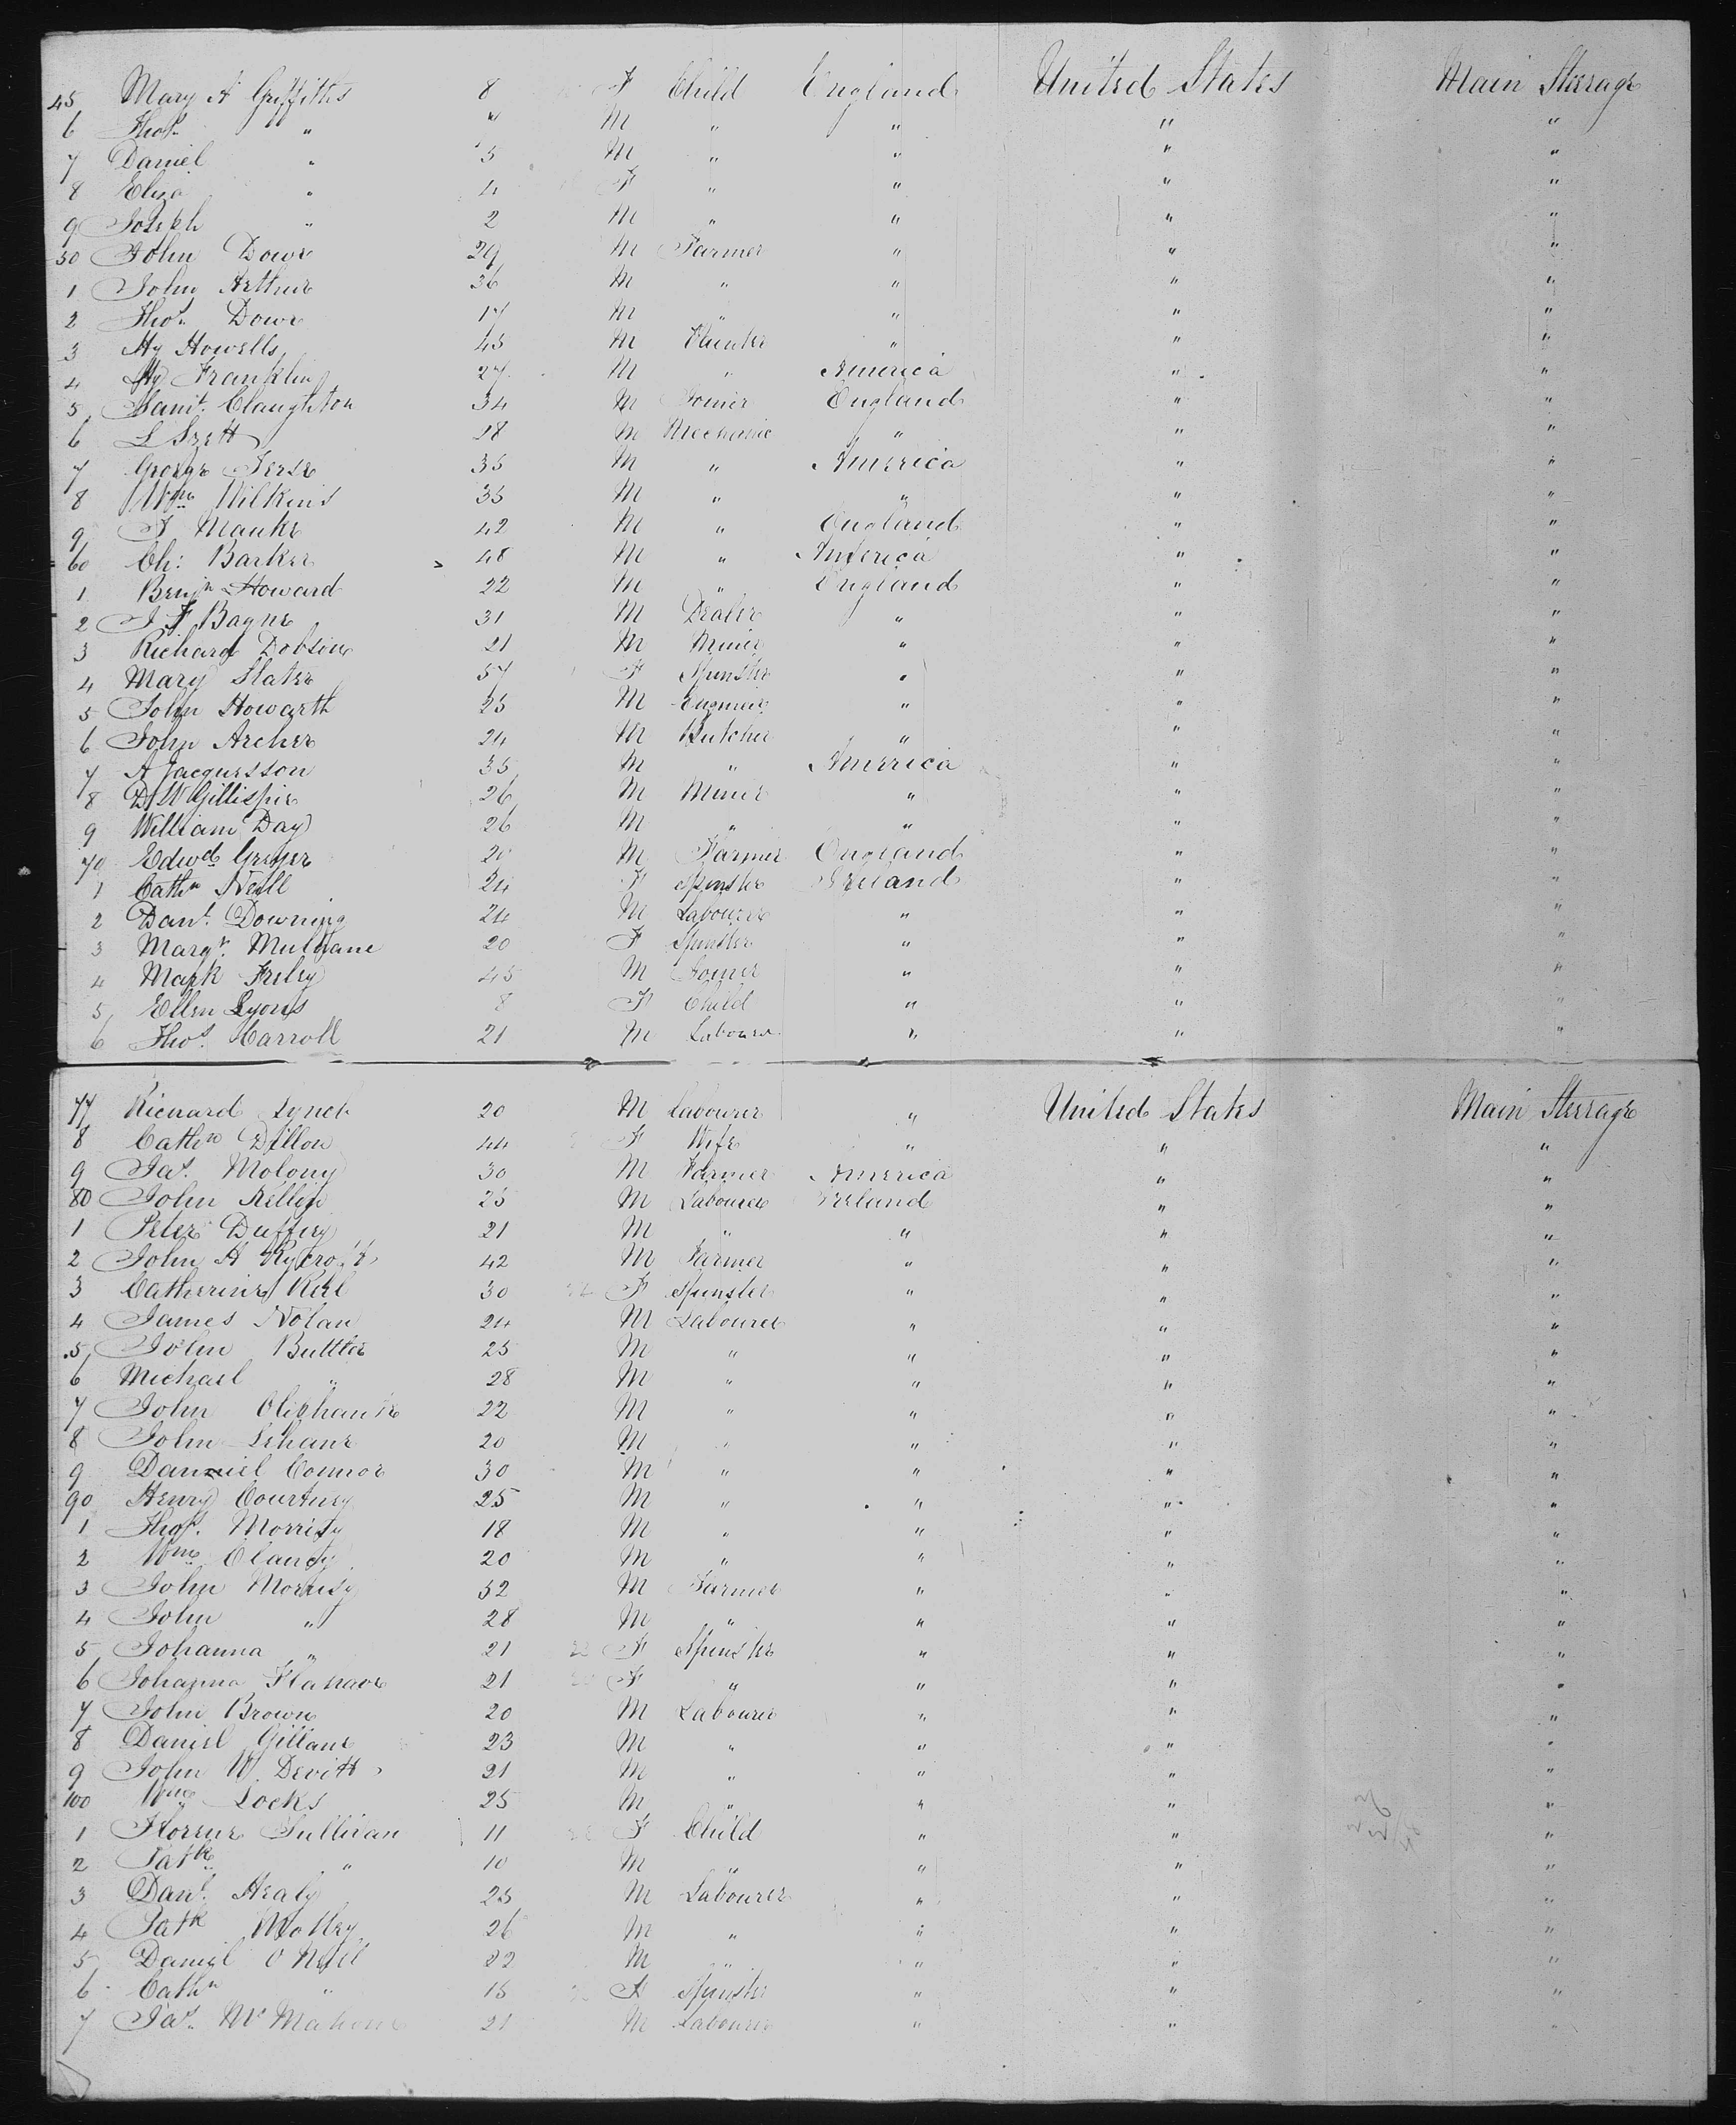 45 Mary A Griffiths 8 F Child England United States Main Steerage
6 Thos. " M " " " "
7 Daniel " 5 M " " " "
8 Eliza " 4 F " " " "
9 Joseph " 2 M " " " "
50 John Dowe 29 M Farmer " " "
1 John Arthur 36 M " " " "
2 Thos. Dowe 17 M " " " "
3 Hy Howells 45 M " " "
4 Hy Franklin 27 M " America " "
5 Saml. Claughton 34 M Joiner England " "
6 L Srett 28 M Mechanic " " "
7 George Terse 35 M " America " "
8 Wm Wilkins 35 M " " " "
9 J Manke 42 M " England " "
60 Ch: Barker 48 M " America " "
1 Benjn Howard 22 M " England " "
2 J F Bayne 31 M Dealer " " "
3 Richard Dobsine 21 M Miner " " "
4 Mary Slater 57 F Spinster " " "
5 John Howarth 25 M Engineer " " "
6 John Archer 24 M Butcher " " "
7 A Jacquesson 35 M " America " "
8 D W Gillispie 26 M Miner " " "
9 William Day 26 M " " " "
70 Edwd. Greyer 20 M Farmer England " "
1 Cathn Neill 24 F Spinster Ireland " "
2 Danl. Downing 24 M Labourer " " "
3 Margt. Mulllane 20 F Spinster " " "
4 Mark Friley 45 M Joiner " " "
5 Ellen Lyons 8 F Child " " "
6 Thos. Carroll 21 M Labourer " " "
77 Richard Lynch 20 M Labourer " United States Main Steerage
8 Cathn Dillon 44 F Wife " " "
9 Jas. Molony 30 M Farmer America " "
80 John Killin 25 M Labourer Ireland " "
1 Peter Duffey 21 M " " " "
2 John A 42 M Farmer " " "
3 Catherine Kiel 30 F Spinster " " "
4 James Nolan 24 M Labourer " " "
5 John Buttler 25 M " " " "
6 Michael " 28 M " " " "
7 John Oliphant 22 M " " " "
8 John Lehane 20 M " " " "
9 Daniel Connor 30 M " " " "
90 Henry Courtney 25 M " " " "
1 Thos. Morrisy 18 M " " " "
2 Wm Clancy 20 M " " " "
3 John Morrisy 52 M Farmer " " "
4 John " 28 M " " " "
5 Johanna " 21 F Spinster " " "
6 Johanna 21 F " " " "
7 John Brown 20 M Labourer " " "
8 Daniel Gillane 23 M " " " "
9 John W. Devitt 21 M " " " "
100 Wm Locks 25 M " " " "
1 Florene Sullivan 11 F Child " " "
2 Patk " 10 M " " " "
3 Danl. Healy 25 M Labourer " " "
4 Patk Motley 26 M " " " "
5 Daniel O Neill 22 M " " " "
6 Cathn " 15 F Spinster " " "
7 Jas. McMahon 21 M Labourer " " "